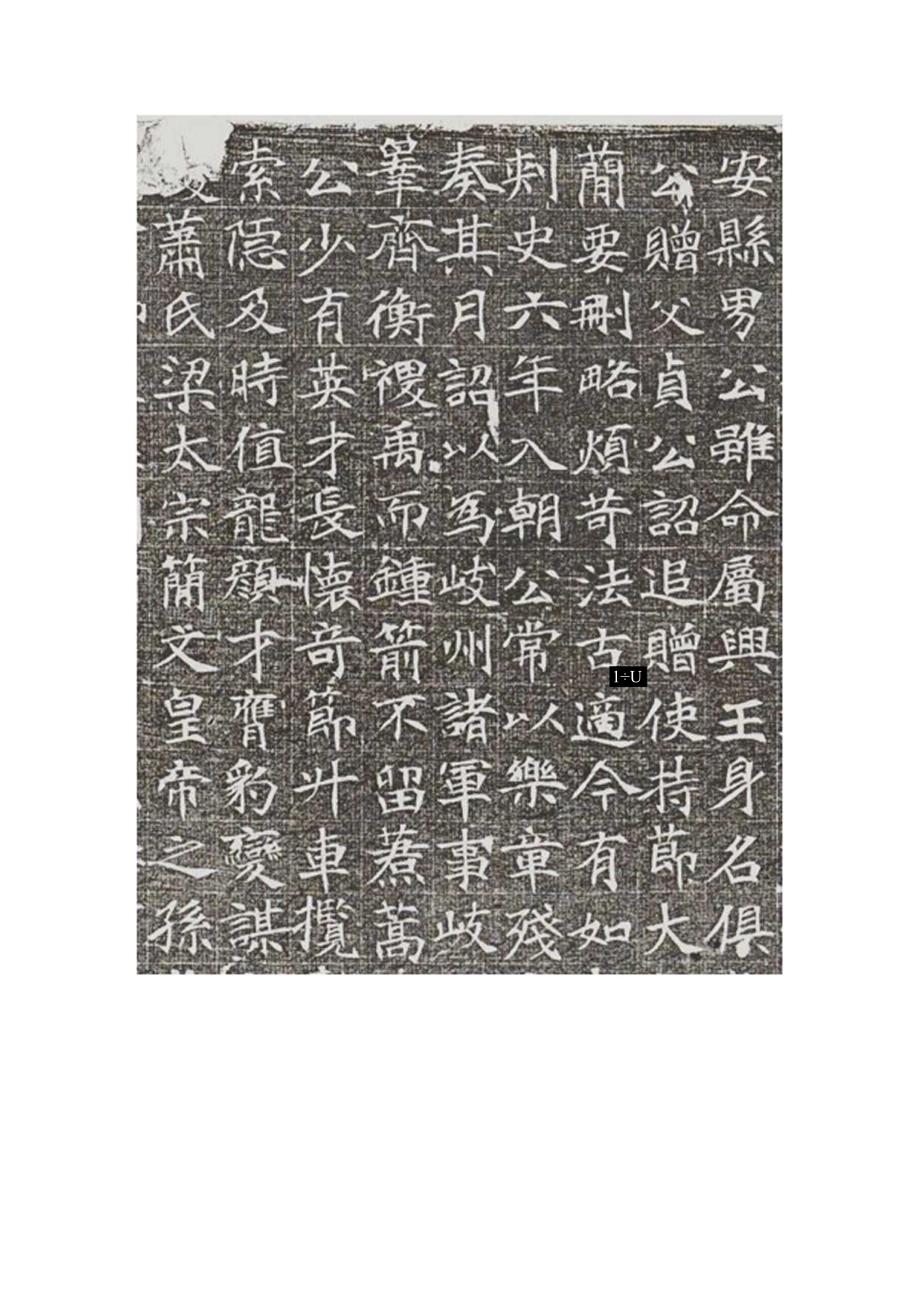 安縣男公雖命屬興王身名俱
公贈父貞公詔追贈使持節大
蕳要刪略煩苛法古適今有如
刺史六年入朝公常以樂章殘
奏其月詔以為岐州諸軍事岐
輩齊衡禝禹而鍾箭不留焄蒿
公少有英才長懐奇節升車攬
索隠及時值龍顏才膺豹變謀
蕭氏梁太宗簡文皇帝之孫
1÷U